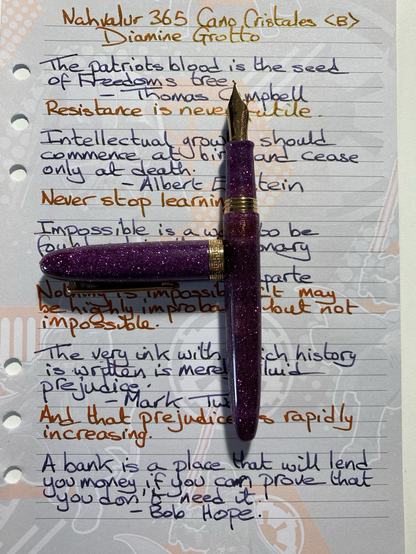 Nahvalur 365 Cano Cristales <B>
Diamine Grotto
The patriots blood is the seed
of Freedoms tree.
- Thomas C mpbell
Resistance is never utile.
Intellectual grow should
commence at bir and cease
only at death.
- Albert E stein
Never stop learnin
Impossible is a w to be
onary
parte
Nothing is impossib it may
be highly improba but not
impossible.
The very ink with ich history
is written is merel luid
prejudice.
- Mark Twa
And that prejudice s rapidly
increasing.
A bank is a place that will lend
you money if you can prove that
you don't need it.
- Bob Hope.